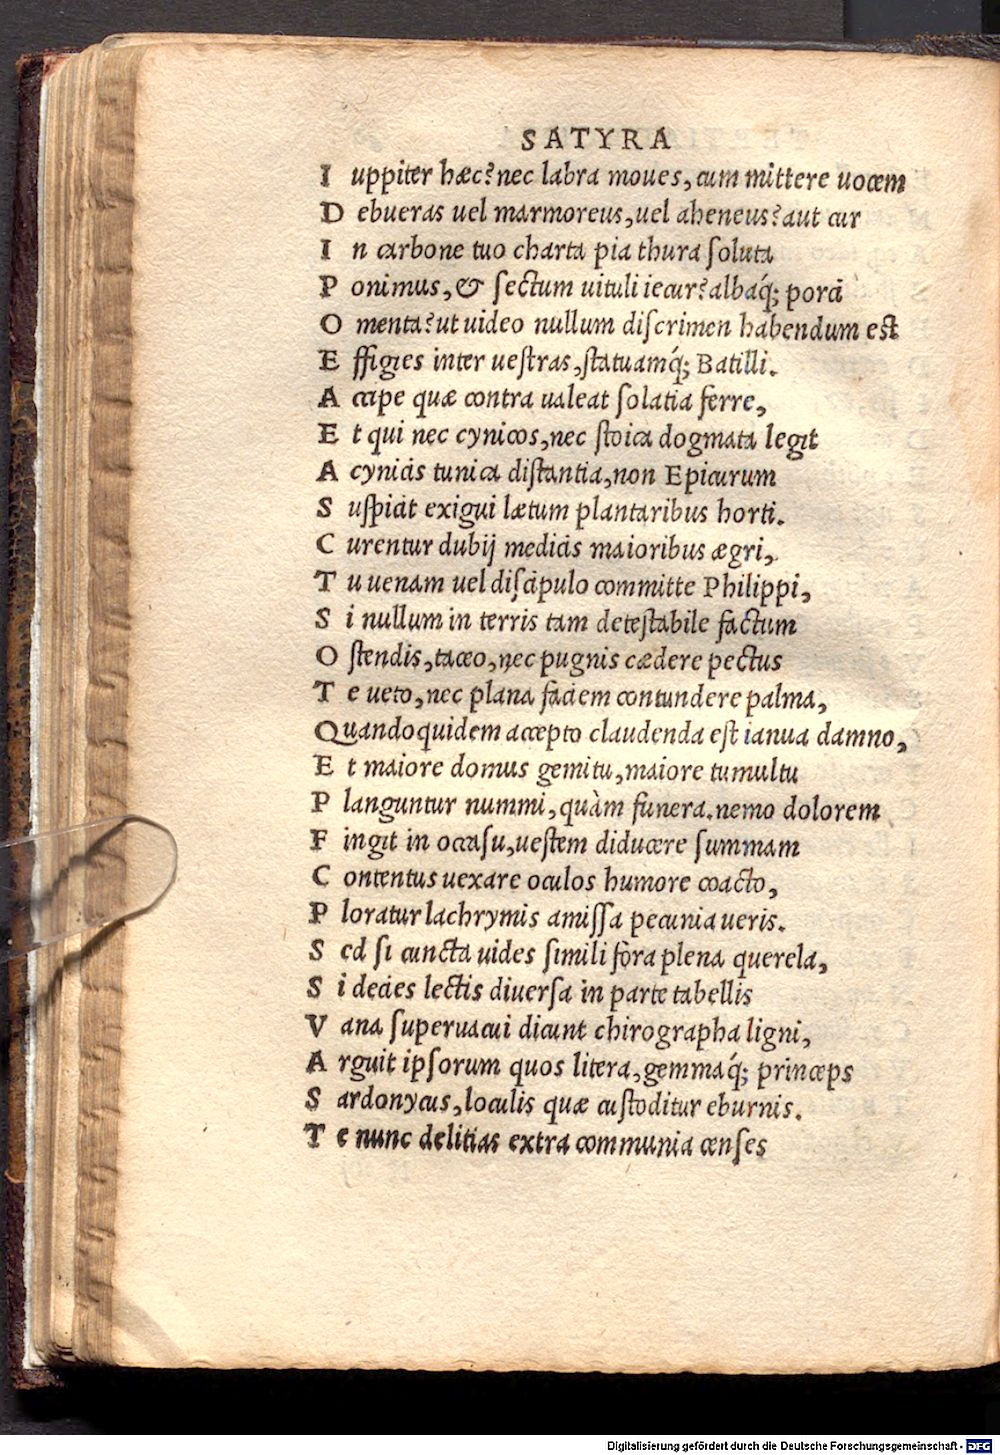 SATYRA
I uppiter hæc? nec labra moues, cum mittere uocem
D ebueras uel marmoreus, uel aheneus? aut cur
I n carbone tuo charta pia thura soluta
P onimus, & sectum uituli iecur? albaq́; porci
O menta? ut uideo nullum discrimen habendum est
E ffigies inter uestras, statuamq́; Batilli.
A ccipe quæ contra ualeat solatia ferre,
E t qui nec cynicos, nec stoica dogmata legit
A cynicis tunica distantia, non Epicurum
S uspicit exigui lætum plantaribus horti.
C urentur dubij medicis maioribus ægri,
T u uenam uel discipulo committe Philippi,
S i nullum in terris tam detestabile factum
O stendis, taceo, nec pugnis cædere pectus
T e ueto, nec plana faciem contundere palma,
Quandoquidem accepto claudenda est ianua damno,
E t maiore domus gemitu, maiore tumultu
P languntur nummi, quàm funera. nemo dolorem
F ingit in occasu, uestem diducere summam
C ontentus uexare oculos humore coacto,
P loratur lachrymis amissa pecunia ueris.
S ed si cuncta uides simili fora plena querela,
S i decies lectis diuersa in parte tabellis
V ana superuacui dicunt chirographa ligni,
A rguit ipsorum quos litera, gemmaq́; princeps
S ardonycus, loculis quæ custoditur eburnis.
T e nunc delitias extra communia censes
Digitalisierung gefördert durch die Deutsche Forschungsgemeinschaft - DFG